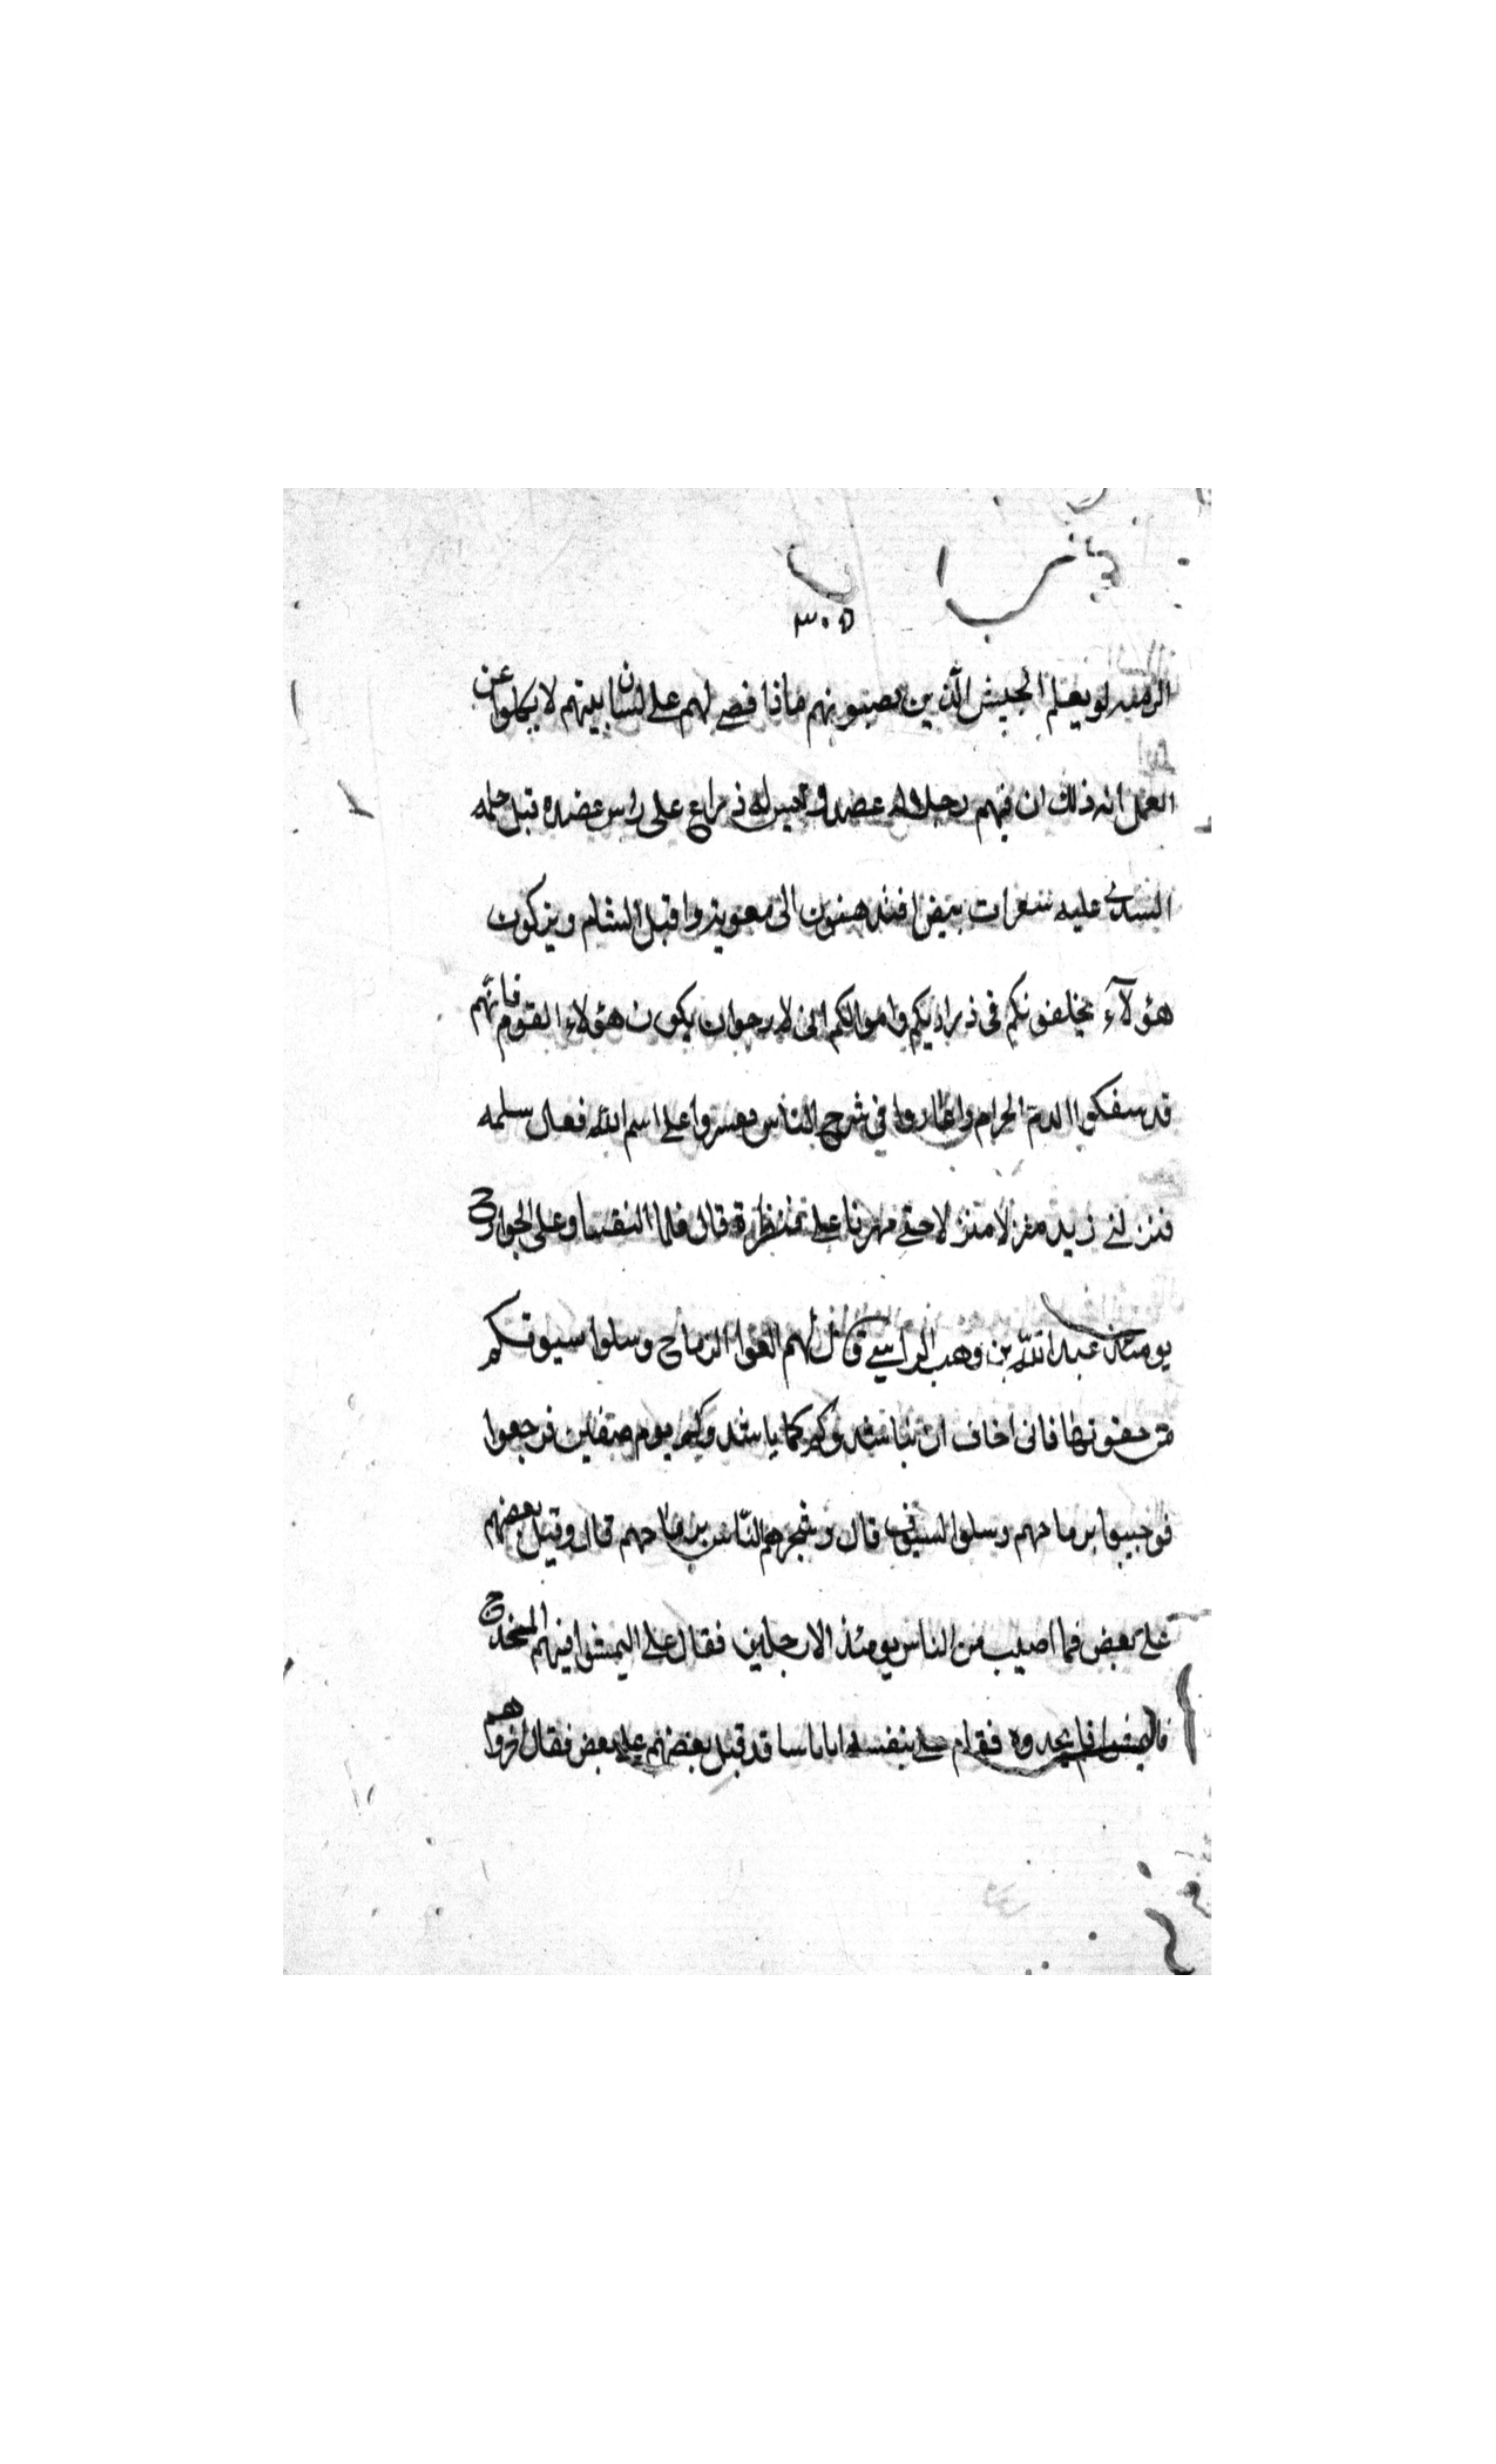 ٣٠٥
الرميه لو يعلم الجيش الذين يصيبونهم ماذا قضي لهم على لسان بينهم لا يكلوا عن
العمل انه ذلك ان فيهم رجلا له عضد وليس له ذراع على راس عضده قبل حلمه
الثدي عليه شعرات بيض افتذهبون الى معوية واقبل الشام ويتركون
هؤلآء يخلفونكم في ذراريكم واموالكم اني لا رجوان يكون هؤلاء القوم فانهم
قد سفكوا الدم الحرام واغاروا في شرح الناس فسيروا على اسم الله فقال سلمه
فنزلني زيد منزلا منزلا حتى مررنا على قنطرة قال فلما التقينا وعلى الخوارج
يومئذ عبد الله بن وهب الراسبي قال لهم القوا الرماح وسلوا سيوفكم
من جفونها فاني اخاف ان يناشدوكم كما يناشدوكم يوم صفين فرجعوا
فوحبسوا برماحهم وسلوا السيوف قال وشجرهم الناس برماحهم قال وقتل بعضهم
على بعض فما اصيب من الناس يومئذ الا رجلين فقال علي اليمسوا فيهم المخدج
فاليمسوا فلم يجدوه فقام علي بنفسه اناسا قد قبل بعضهم على بعض فقال اخروهم